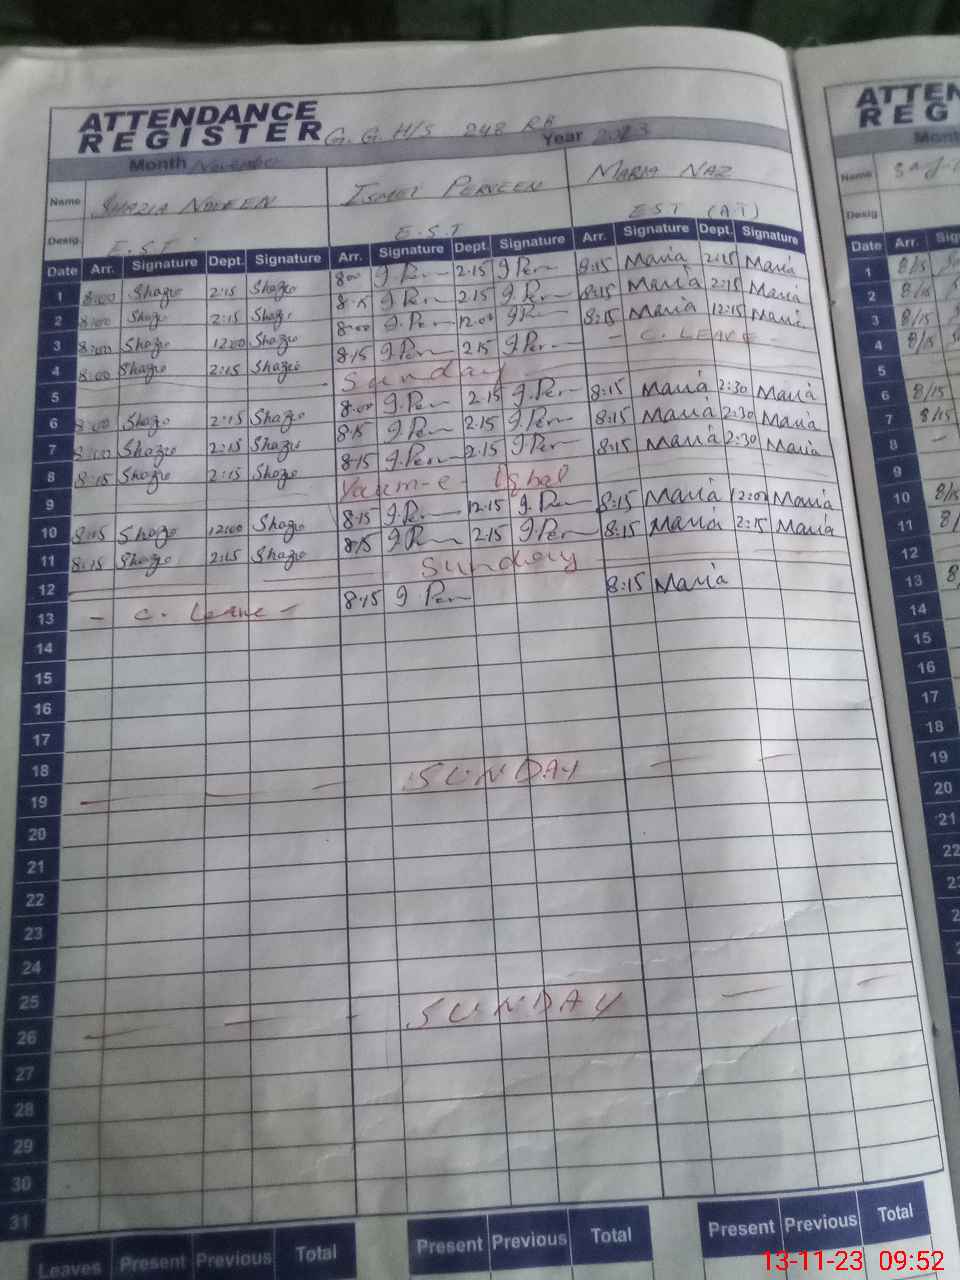 ATTENDANCE
REGISTER G.G.H/S 248 RB Year 2023
Month November
Name SHAZIA NOREEN PERVEEN MARIA NAZ
Desig. E.S.T. E.S.T EST (A.T)
Date Arr. Signature Dept. Signature Arr. Signature Dept. Signature Arr. Signature Dept. Signature
1 8:00 Shazio 2:15 Shazio 8:00 2:15 8:15 Maria 2:15 Maria
2 8:00 Shazio 2:15 Shazio 8:15 2:15 8:15 Maria 2:15 Maria
3 8:00 Shazio 12:00 Shazio 8:00 12:00 8:15 Maria 12:15 Maria
4 8:00 Shazio 2:15 Shazio 8:15 2:15 - C. LEAVE -
5 Sunday
6 8:00 Shazio 2:15 Shazio 8:00 2:15 8:15 Maria 2:30 Maria
7 8:00 Shazio 2:15 Shazio 8:15 2:15 8:15 Maria 2:30 Maria
8 8:15 Shazio 2:15 Shazio 8:15 2:15 8:15 Maria 2:30 Maria
9 Yaum-e-Iqbal
10 8:15 Shazio 12:00 Shazio 8:15 12:15 8:15 Maria 12:00 Maria
11 8:15 Shazio 2:15 Shazio 8:15 2:15 8:15 Maria 2:15 Maria
12 Sunday
13 - C. Leave - 8:15 8:15 Maria
14
15
16
17
18
19 SUNDAY
20
21
22
23
24
25
26 SUNDAY
27
28
29
30
31
Leaves Present Previous Total Present Previous Total Present Previous Total
ATTEN
REG
Month
Name
Desig
Date Arr. Sig
1 8/15
2 8/15
3 8/15
4 8/15
5
6 8/15
7 8/15
8 -
9
10 8/15
11
12
13
14
15
16
17
18
19
20
21
22
13-11-23 09:52